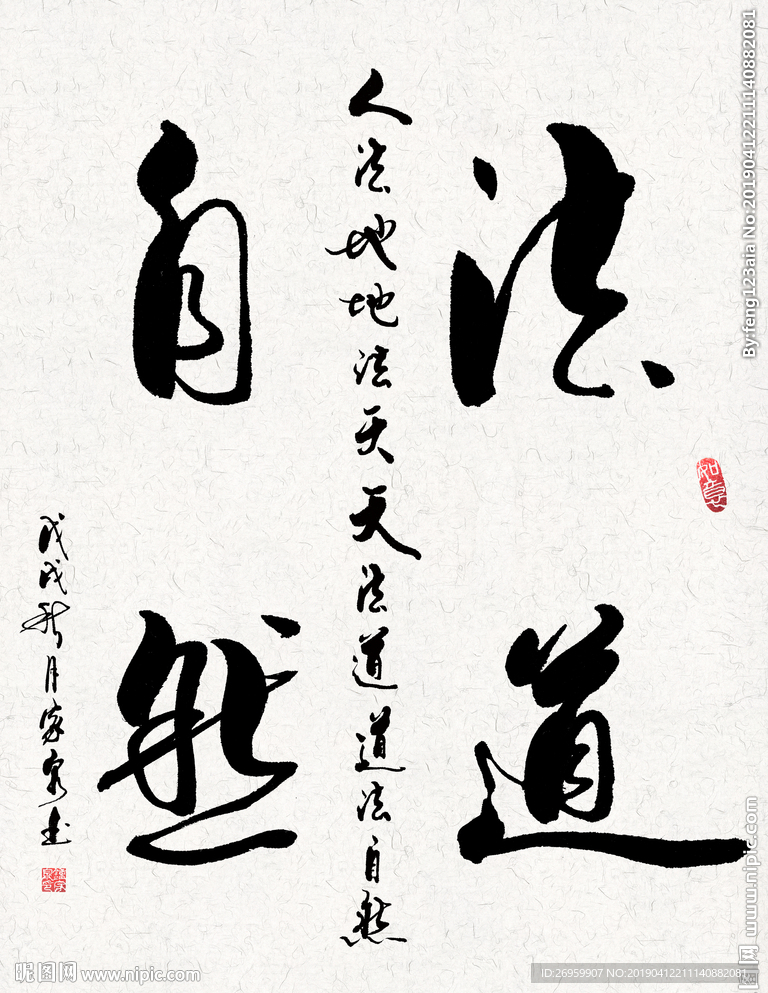 法道
如意
人法地地法天天法道道法自然
自然
戊戌秋月家泉书
By:feng123aia No:20190412211140882081
昵图网 www.nipic.com
www.nipic.com
昵图网
ID:26959907 NO:20190412211140882081